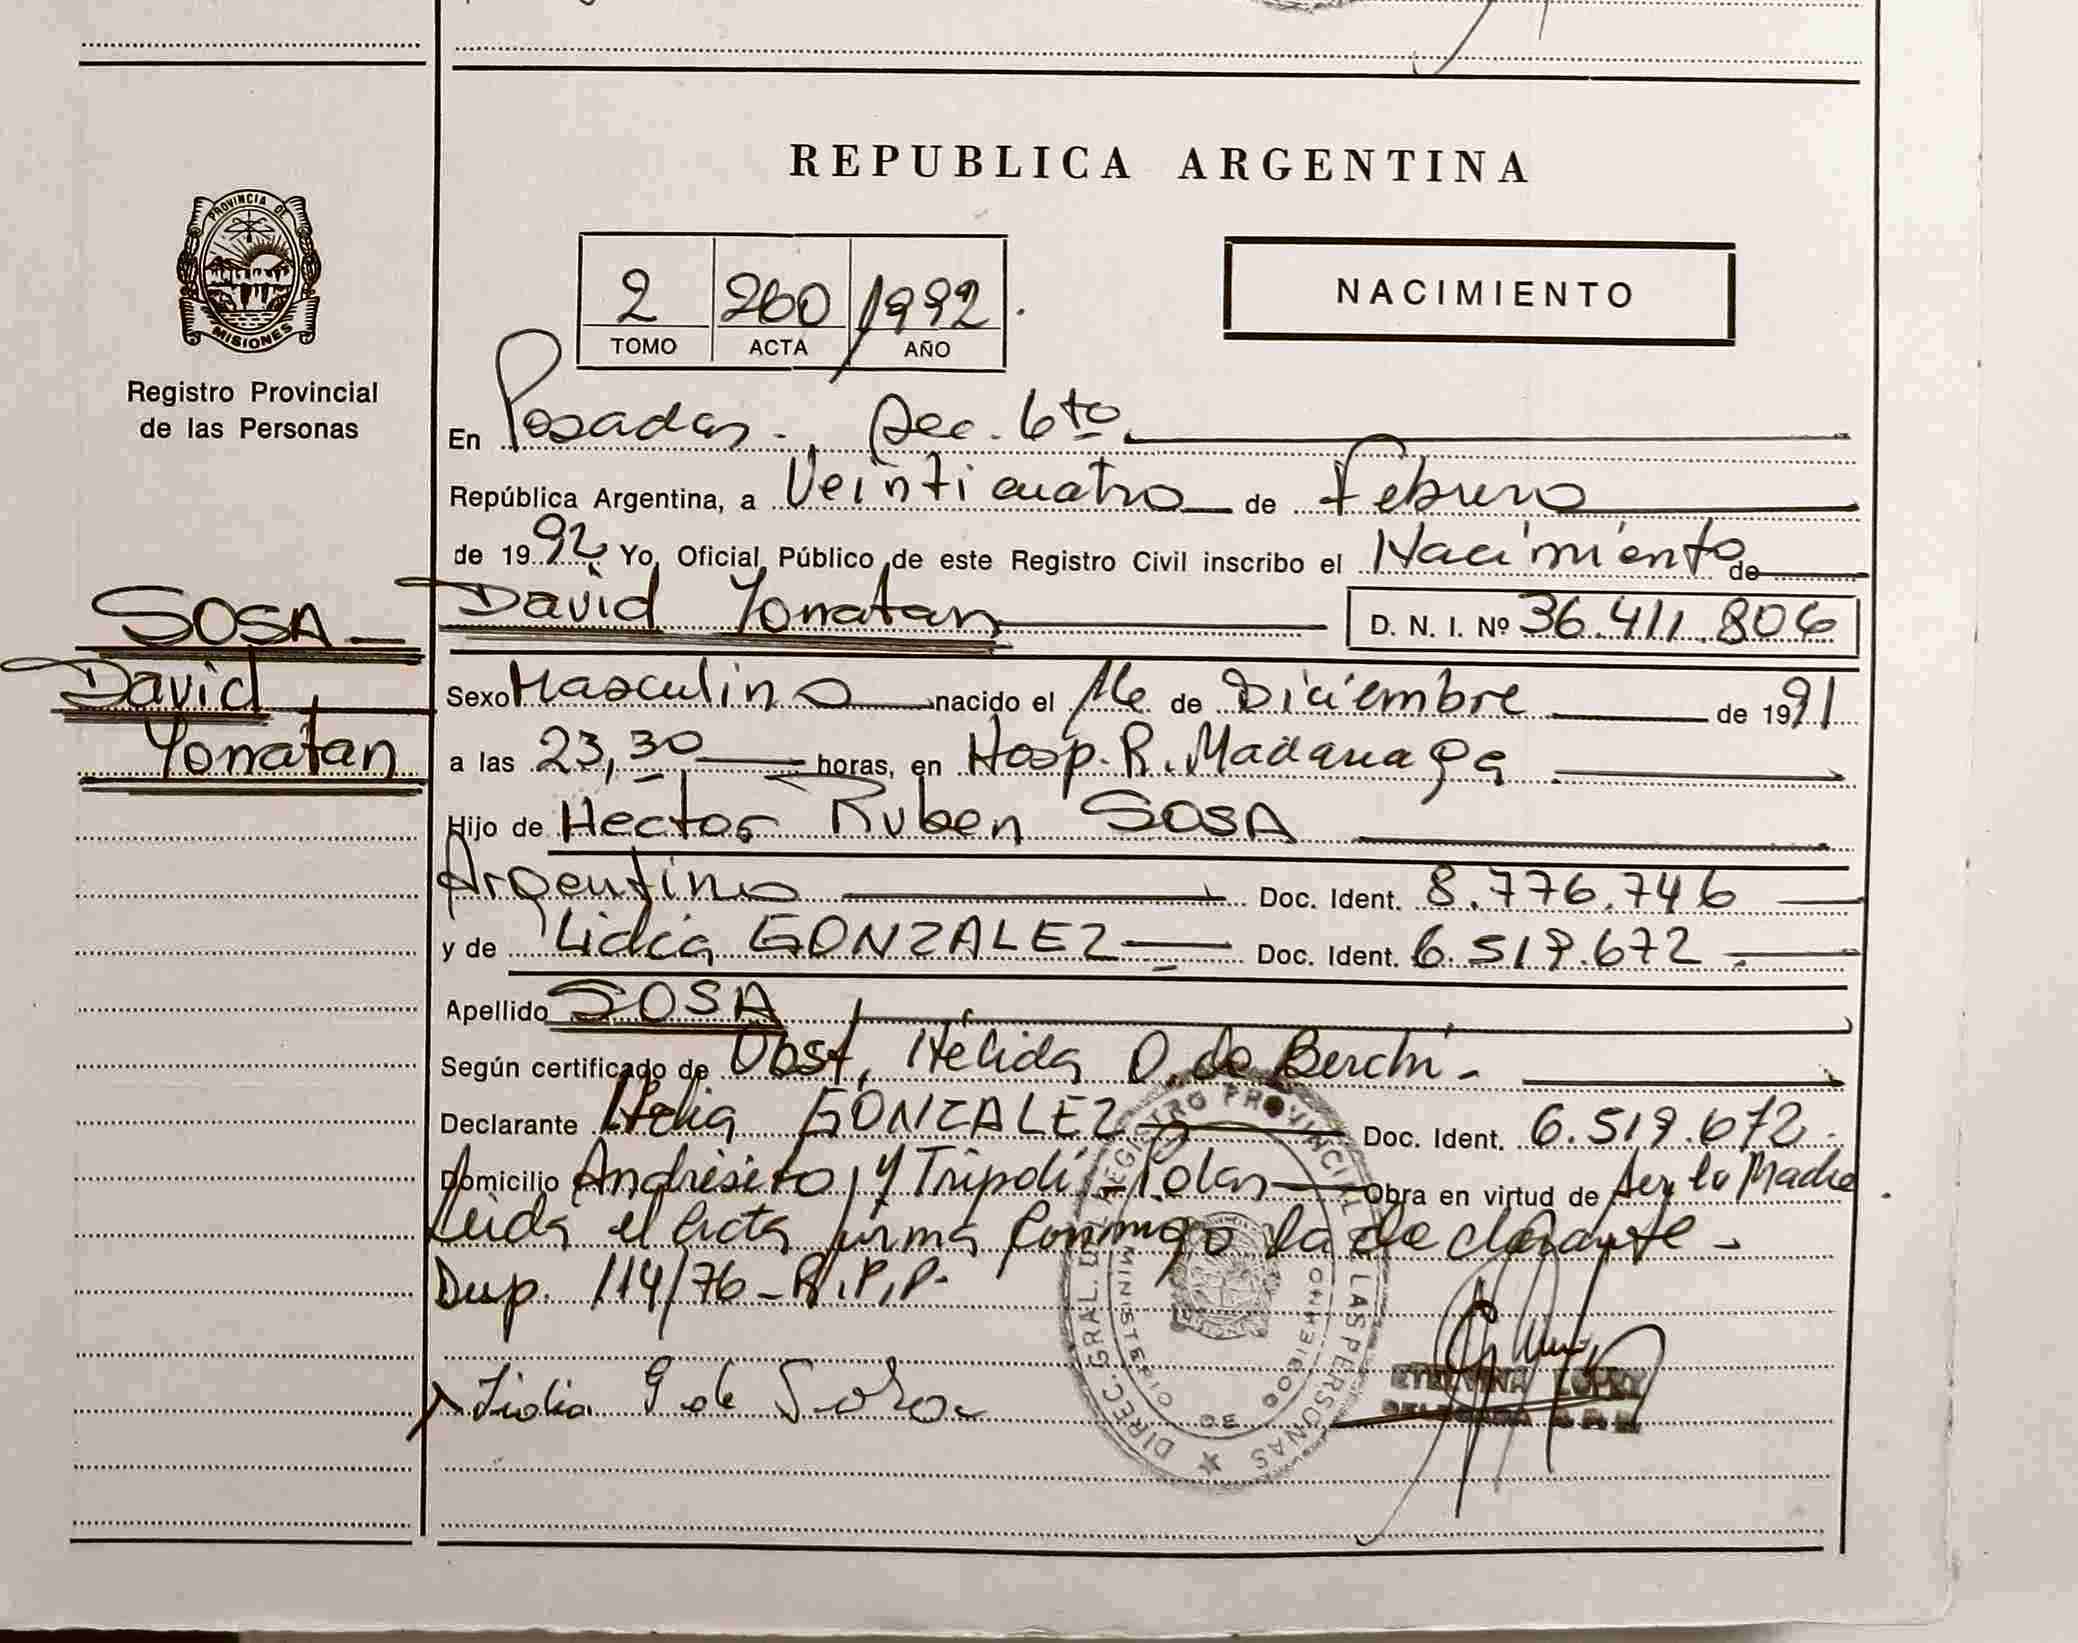 REPUBLICA ARGENTINA
PROVINCIA DE
MISIONES
Registro Provincial
de las Personas
2 260 1992
TOMO ACTA AÑO
NACIMIENTO
En Posadas. Sec. 6to
República Argentina, a Veinticuatro de Febrero
de 1992 Yo, Oficial Público de este Registro Civil inscribo el Nacimiento de
SOSA
David
Yonatan
David Yonatan D. N. I. Nº 36.411.806
Sexo Masculino nacido el 16 de Diciembre de 1991
a las 23,30 horas, en Hosp. R. Madariaga
Hijo de Hector Ruben SOSA
Argentino Doc. Ident. 8.776.746
y de Lidia GONZALEZ Doc. Ident. 6.519.672
Apellido SOSA
Según certificado de Obst, Nélida D. de Berchi.
Declarante GONZALEZ Doc. Ident. 6.519.672
Domicilio Andresito y Tripoli Obra en virtud de Ser la Madre.
Leida el acta firma conmigo la declarante
Dup. 114/76 - R.P.P.
DIREC. GRAL. DEL REGISTRO PROVINCIAL DE LAS PERSONAS
MINISTERIO DE GOBIERNO
Lidia G de Sosa